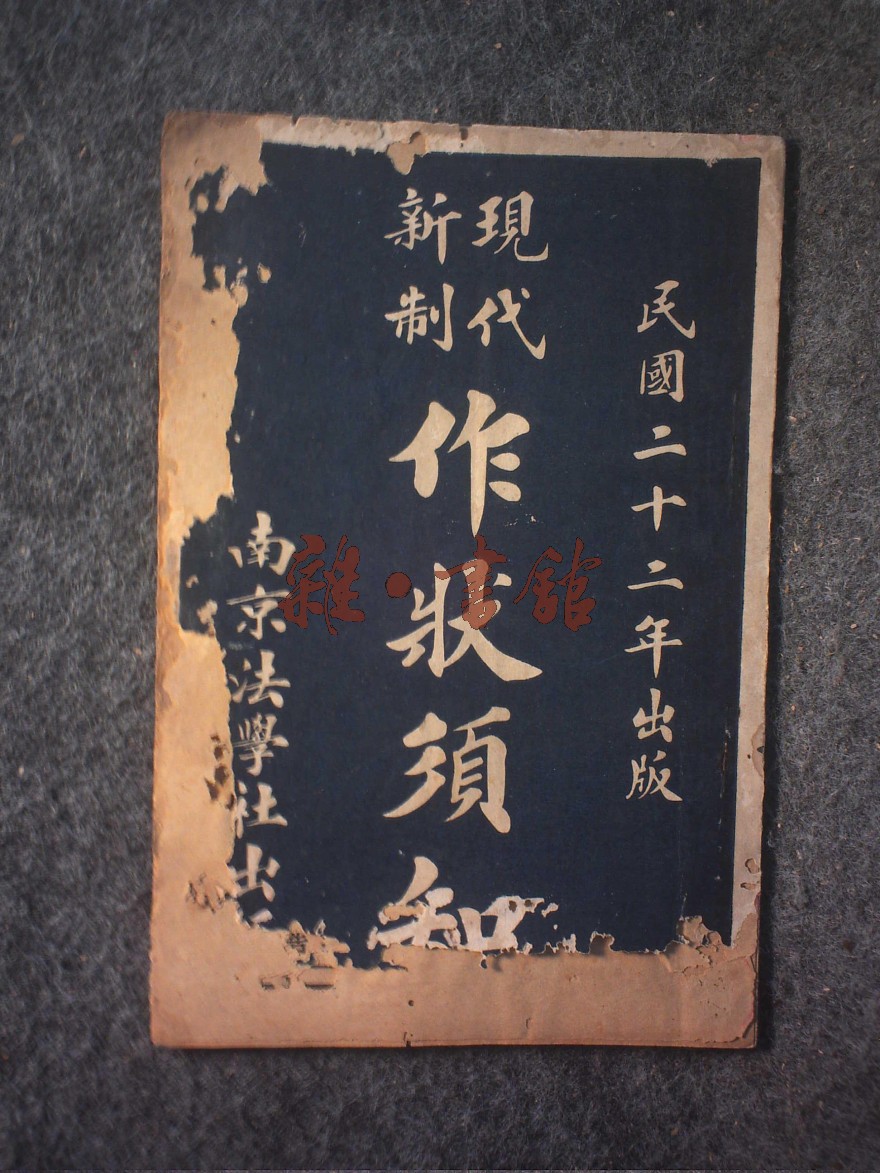 民國二十二年出版
現代
新制
作狀須知
南京法學社出
雜·書館